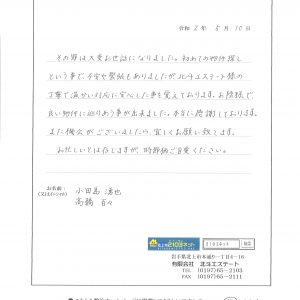 令和 2 年 5 月 10 日
その節は大変お世話になりました。初めての物件探し
という事で不安や緊張もありましたが北斗エステート様の
丁寧で温かい対応に安心した事を覚えております。お陰様で
良い物件に巡りあう事が出来ました。本当に感謝しております。
また機会がございましたら、宜しくお願い致します。
お忙しいとは存じますが、時節柄ご自愛ください。
お名前:
(又はｲﾆｼｬﾙ)
高橋
北上市
210ネット
210ネット
検索
岩手県北上市本通り一丁目4-16
有限会社 北斗エステート
TEL (0197)65-2103
FAX (0197)65-2111